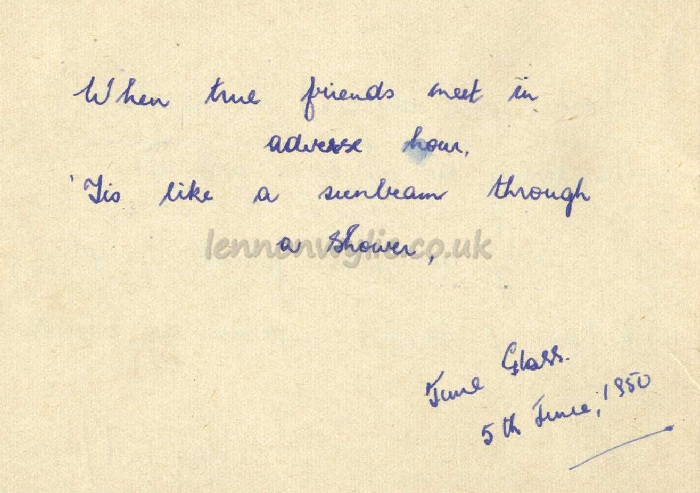 When true friends meet in
adverse hour,
'Tis like a sunbeam through
a shower,
lennonwylie.co.uk
June Glass.
5th June, 1950